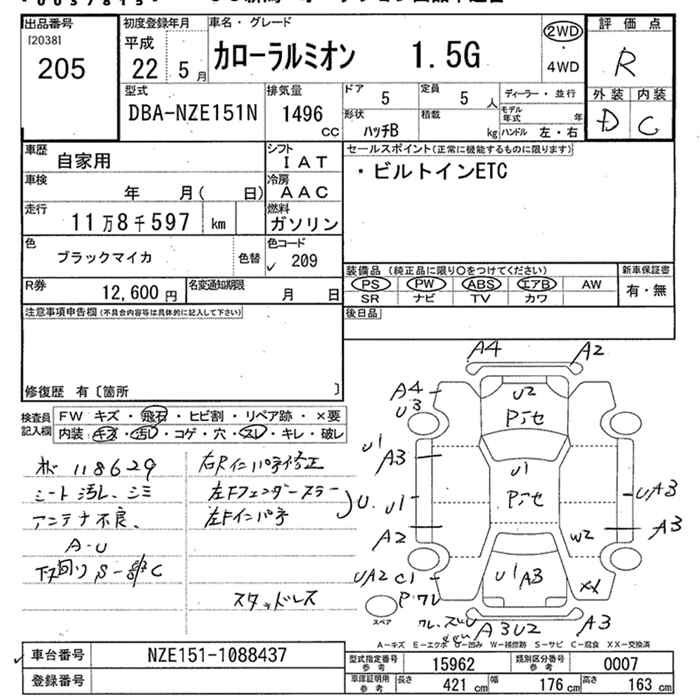 出品番号
[2038]
205
初度登録年月
平成
22年 5月
車名・グレード
カローラルミオン 1.5G
2WD
・
4WD
評価点
R
外装 内装
D C
型式
DBA-NZE151N
排気量
1496 CC
ドア 5
定員 5 人
ディーラー・並行
形状 ハッチB
積載 kg
モデル年式 年
ハンドル 左・右
車歴
自家用
シフト
IAT
セールスポイント(正常に機能するものに限ります)
・ビルトインETC
車検
年 月( 日)
冷房
AAC
走行
11万8千597 km
燃料
ガソリン
色
ブラックマイカ
色替
色コード
209
R券
12,600 円
名変通知期限
月 日
装備品(純正品に限り〇をつけてください)
PS PW ABS エアB AW
SR ナビ TV カワ
新車保証書
有・無
注意事項申告欄(不具合内容等は具体的に記入して下さい)
後日品
修復歴 有〔箇所 〕
検査員記入欄
FW キズ・飛石・ヒビ割・リペア跡・×要
内装・キズ・汚レ・コゲ・穴・スレ・キレ・破レ
118629
シート汚レ、シミ
アンテナ不良、
A-U
下回りS-錆C
右Rインパネ修正
左Fフェンダースラー
左Fインパネ
U.
スタッドレス
A4 A2
A4
U3
U2
Pアセ
U1
A3
U1
Pアセ
U1
UA3
A2
W2
A3
UA2 C1
U1 A3
XX
P.ワレ
スペア
A3U2
A3
A-キズ E-エクボ U-凹み W-補修跡 S-サビ C-腐食 XX-交換済
車台番号
NZE151-1088437
登録番号
型式指定番号 参考
15962
類別区分番号 参考
0007
車庫証明用 参考
長さ 421 cm
幅 176 cm
高さ 163 cm